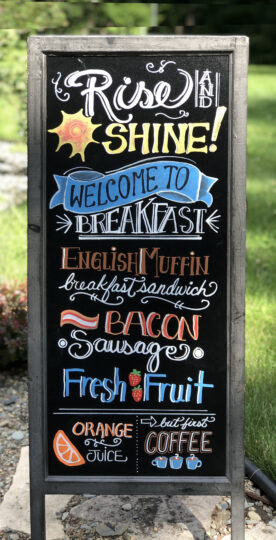 Rise AND
SHINE!
WELCOME TO
BREAKFAST
ENGLISH MUFFIN
breakfast sandwich
BACON
Sausage
Fresh Fruit
ORANGE
JUICE
but first
COFFEE